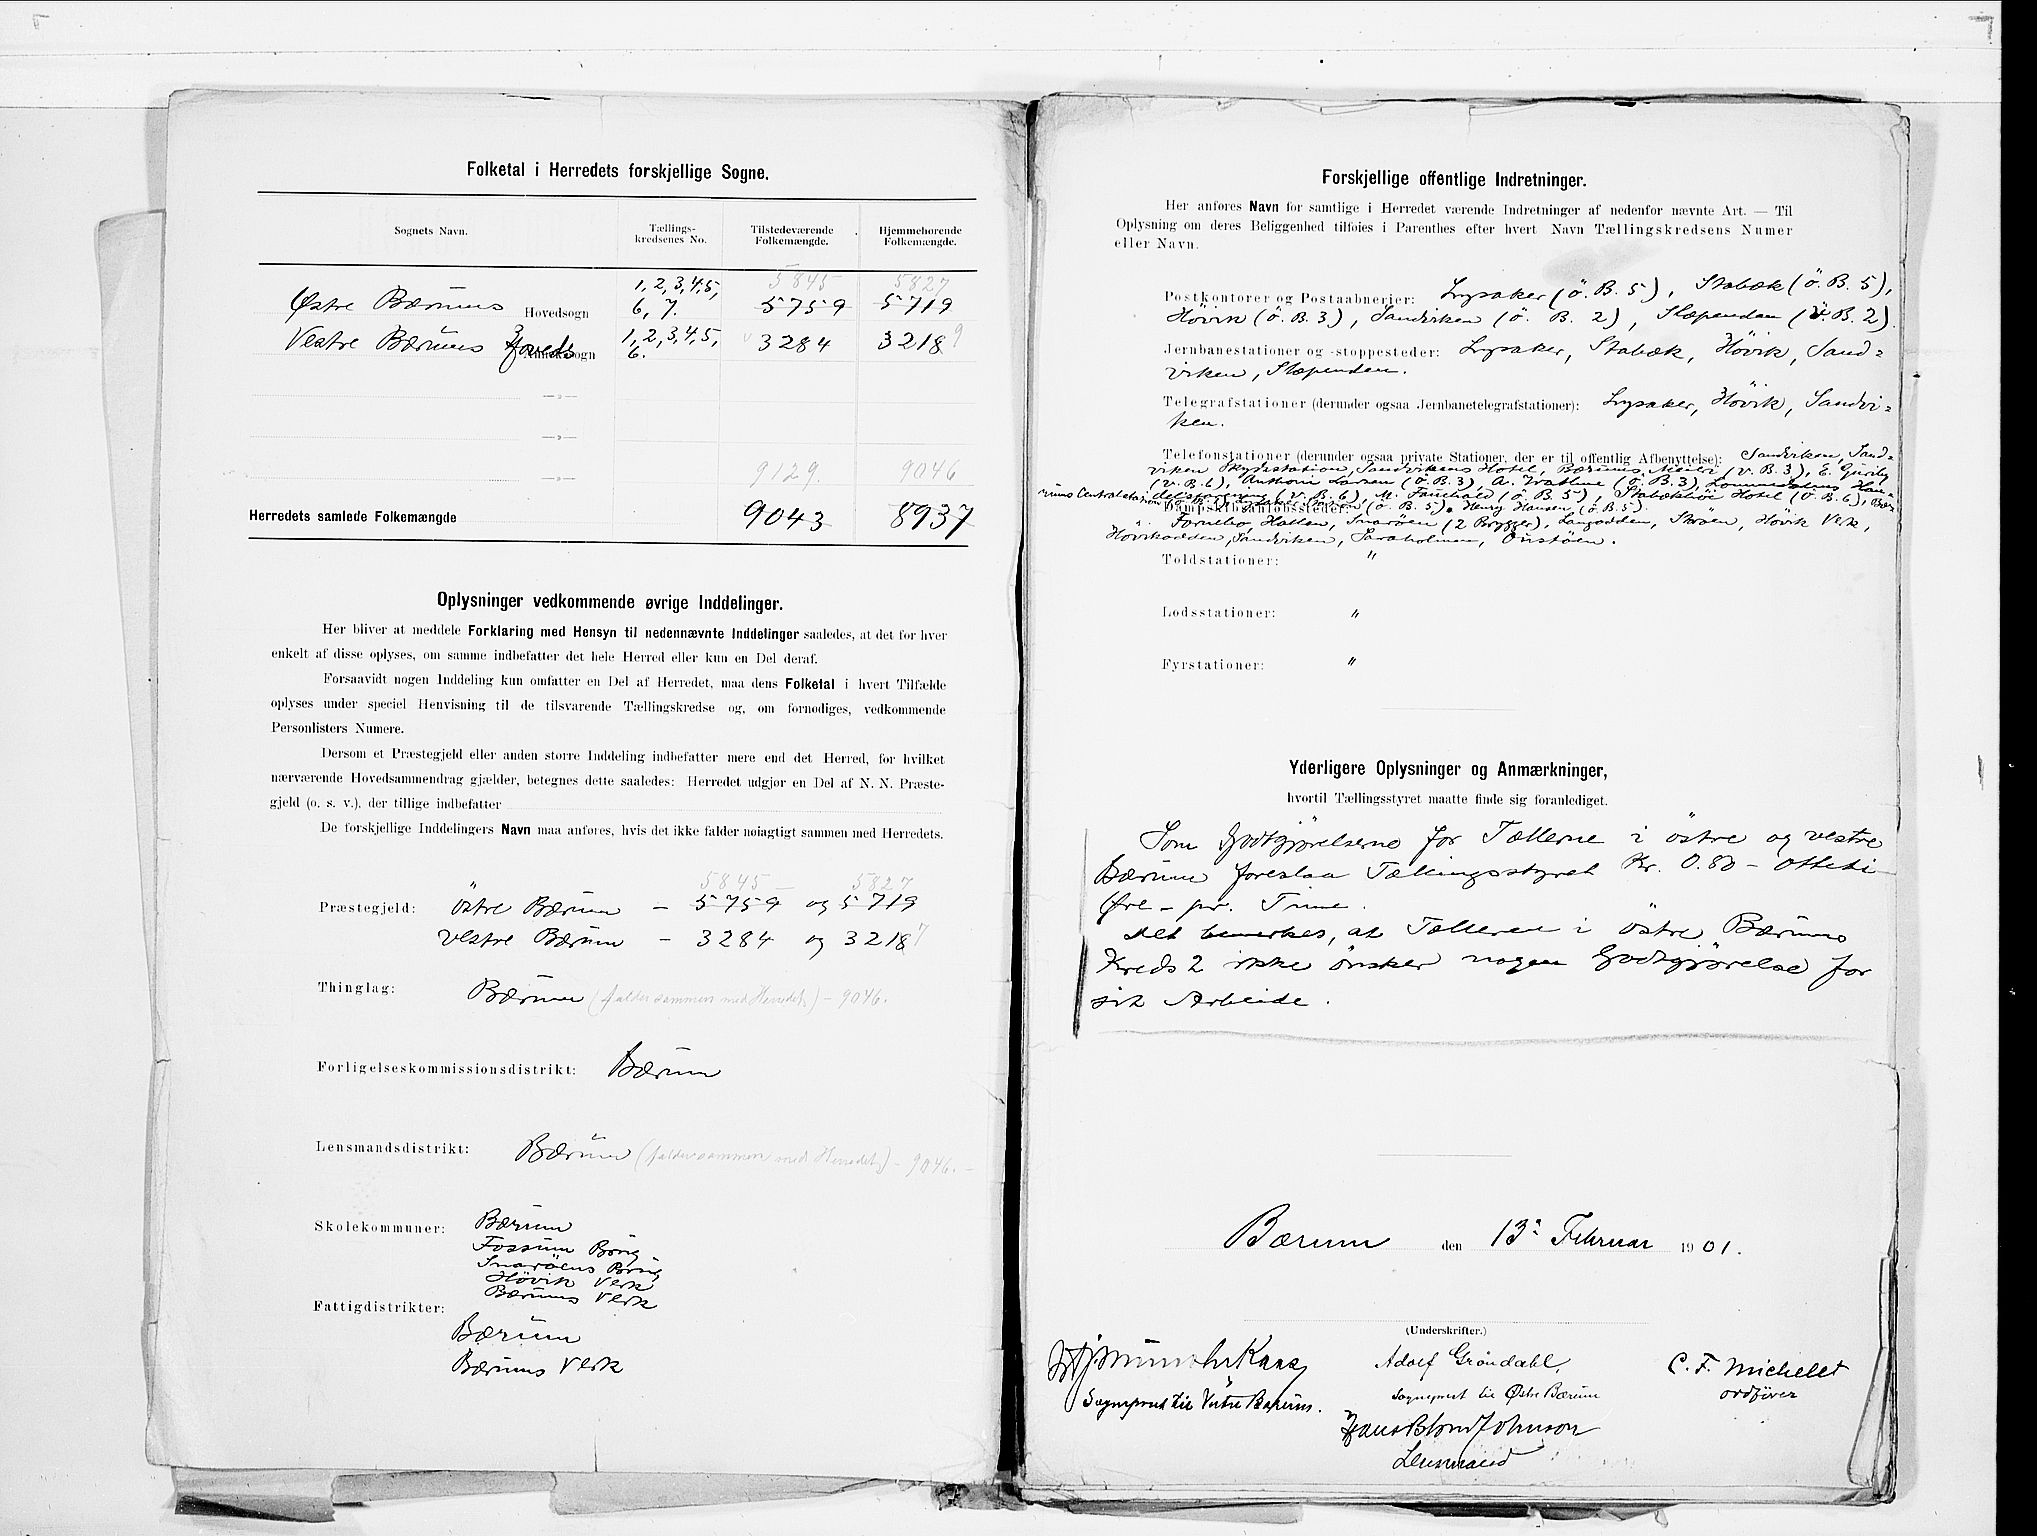 Folketal i Herredets forskjellige Sogne.
Sognets Navn.
Tællings-
kredsenes No.
Tilstedeværende
Folkemængde.
Hjemmehørende
Folkemængde.
5845 5827
Østre Bærums Hovedsogn 1, 2, 3, 4, 5, 6, 7. 5759 5719
Vestre Bærums Hoveds 1, 2, 3, 4, 5, 6. 3284 3218 9
—„—
—„—
—„— 9129. 9046
Herredets samlede Folkemængde 9043 8937
Oplysninger vedkommende øvrige Inddelinger.
Her bliver at meddele Forklaring med Hensyn til nedennævnte Inddelinger saaledes, at det for hver
enkelt af disse oplyses, om samme indbefatter det hele Herred eller kun en Del deraf.
Forsaavidt nogen Inddeling kun omfatter en Del af Herredet, maa dens Folketal i hvert Tilfælde
oplyses under speciel Henvisning til de tilsvarende Tællingskredse og, om fornødiges, vedkommende
Personlisters Numere.
Dersom et Præstegjeld eller anden større Inddeling indbefatter mere end det Herred, for hvilket
nærværende Hovedsammendrag gjælder, betegnes dette saaledes: Herredet udgjør en Del af N. N. Præste-
gjeld (o. s. v.), der tillige indbefatter
De forskjellige Inddelingers Navn maa anføres, hvis det ikke falder nøiagtigt sammen med Herredets.
5845 — 5827
Præstegjeld: östre Bærum – 5759 og 5719
vestre Bærum – 3284 og 3218 7
Thinglag: Bærum (falder sammen med Herredet) – 9046.
Forligelseskommissionsdistrikt: Bærum
Lensmandsdistrikt: Bærum (falder sammen med Herredet) – 9046. –
Skolekommuner: Bærum
Fossum Brug
Snarøens Brug
Høvik Verk
Bærums Verk
Fattigdistrikter:
Bærum
Bærums Verk
Forskjellige offentlige Indretninger.
Her anføres Navn for samtlige i Herredet værende Indretninger af nedenfor nævnte Art. — Til
Oplysning om deres Beliggenhed tilføies i Parenthes efter hvert Navn Tællingskredsens Numer
eller Navn.
Postkontorer og Postaabnerier: Lysaker (ö. B. 5), Stabæk (ö. B. 5),
Høvik (ö. B. 3), Sandviken (ö. B. 2), Slæpenden (v. B. 2)
Jernbanestationer og -stoppesteder: Lysaker, Stabæk, Høvik, Sand=
viken, Slæpenden.
Telegrafstationer (derunder ogsaa Jernbanetelegrafstationer): Lysaker, Høvik, Sandvi=
ken.
Telefonstationer (derunder ogsaa private Stationer, der er til offentlig Afbenyttelse): Sandviken, Sand=
viken Skydsstation, Sandvikens Hotel, Bærums Meieri (v. B. 3), E.
(v. B. 6), Anthoni Larsen (ö. B. 3), A. (ö. B. 3), Lommedalens Han=
delsforening (v. B. 6), M. (ö. B. 5), Hotel (ö. B. 6), Bæ=
rums Centralstation (ö. B. 5), Henry Hansen (ö. B. 5).
Dampskibsanløbssteder:
Fornebo, Halten, Snarøen (2 Brygger), Langodden, Strøen, Høvik Verk,
Høvikodden, Sandviken, Saraholmen,
Toldstationer: "
Lodsstationer: "
Fyrstationer: "
Yderligere Oplysninger og Anmærkninger,
hvortil Tællingsstyret maatte finde sig foranlediget.
Som Godtgjørelserne for Tællerne i östre og vestre
Bærum foreslaa Tællingsstyret Kr. 0.80 – otteti
Øre – pr. Time.
Det bemerkes, at Tælleren i östre Bærums
Kreds 2 ikke önsker nogen Godtgjørelse for
sit Arbeide.
Bærum den 13 Februar 1901.
(Underskrifter.)
Kaas
Sogneprest til Vestre Bærum.
Adolf Gröndahl
sogneprest til Østre Bærum
C. F. Michelet
ordfører
Hans Blom Johnson
Lensmand